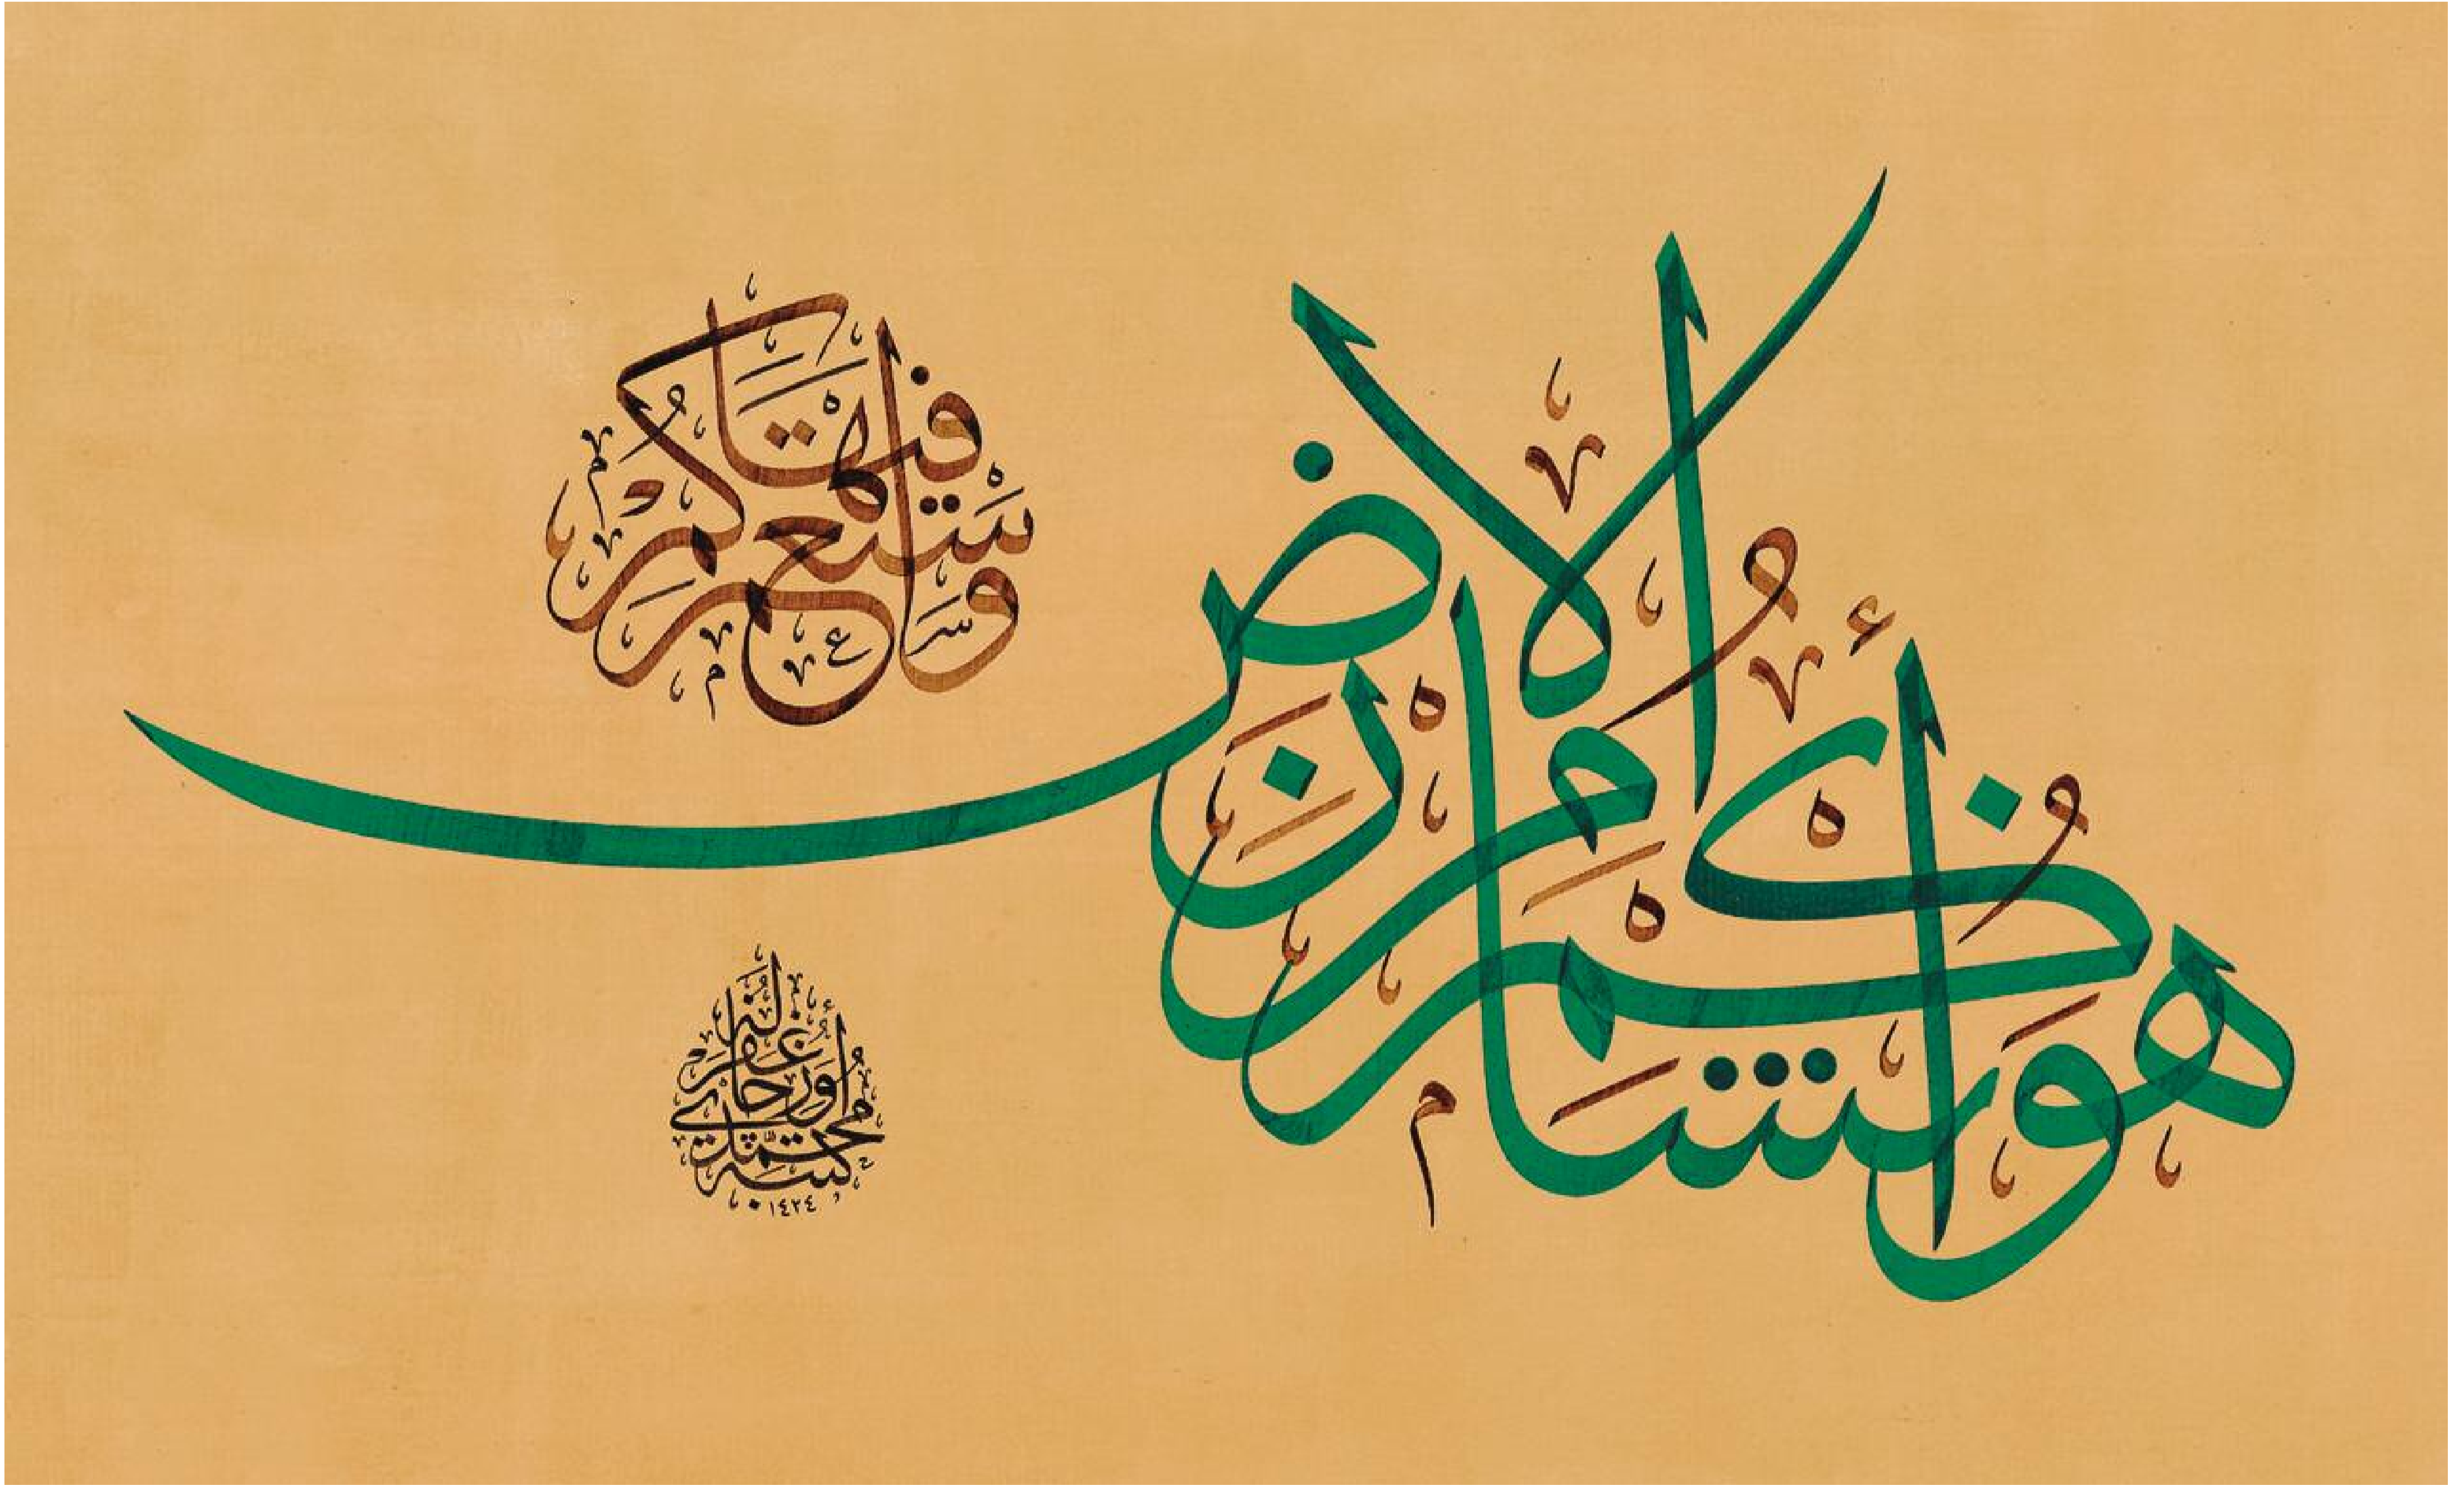 هُوَ أَنْشَأَكُمْ مِنَ الْأَرْضِ
وَاسْتَعْمَرَكُمْ فِيهَا
كتبه محمد اوزچاي غفر له
١٤٢٤